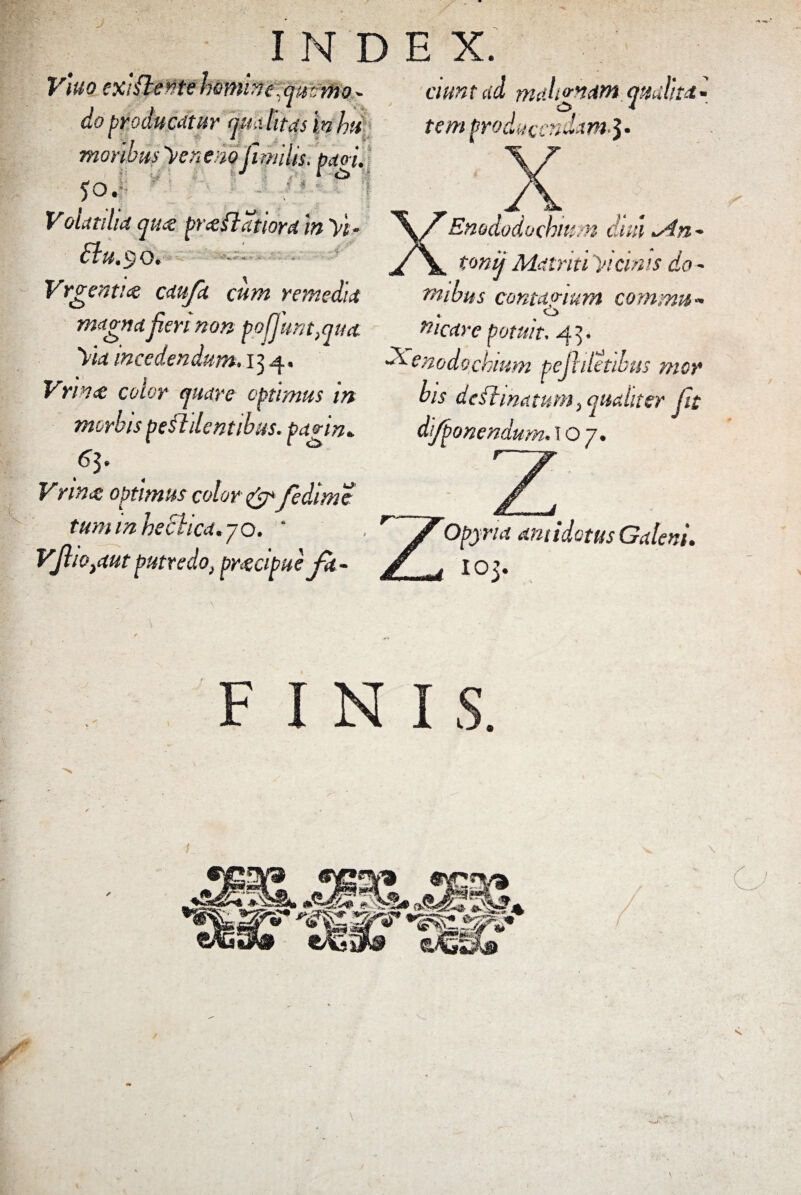 INDEX.
Viuo existente homine, quomo-
do producatur qualitas in hu
moribus veneno similis. pagi.
50.
Volatilia quæ præstatiora in vi-
ctu. 90.
Vrgentiæ causa cùm remedia
magna fieri non possunt, qua
via incedendum. 134.
Vrinæ color quare optimus in
morbis pestilentibus. pagin.
63.
Vrinæ optimus color & sedimē
tum in hectica. 70.
Vstio, aut putredo, præcipuè fa-
ciunt ad malignam qualita-
tem producendam. 3.
X
XEnododochium diui An-
tonij Matriti vicinis do-
mibus contagium commu-
nicare potuit. 43.
Xenodochium pestilētibus mor
bis destinatum, qualiter sit
disponendum. 107.
Z
ZOpyria antidotus Galeni.
103.
FINIS.